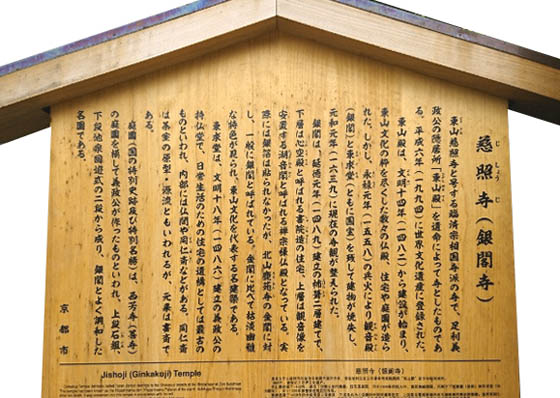 慈照寺(銀閣寺)
じしょうじ
東山慈照寺と号する臨済宗相国寺派の寺で、足利義
政公の隠居所「東山殿」を遺命によって寺としたものであ
る。平成六年(一九九四)に世界文化遺産に登録された。
東山殿は、文明十四年(一四八二)から建設が始まり、
東山文化の粋を尽くした数々の仏殿、住宅や庭園が造ら
れた。しかし、永禄元年(一五五八)の兵火により観音殿
(銀閣)と東求堂(ともに国宝)を残して建物が焼失し、
元和元年(一六三九)に現在の寺観が整えられた。
銀閣は、延徳元年(一四八九)建立の杮葺二層建てで、
下層は心空殿と呼ばれる書院造の住宅、上層は観音像を
安置する潮音閣と呼ばれる禅宗様仏殿となっている。実
際には銀箔は貼られなかったが、北山鹿苑寺の金閣に対
し、一般に銀閣と呼ばれている。金閣に比べて枯淡幽雅
な特色が見られ、東山文化を代表する名建築である。
東求堂は、文明十八年(一四八六)建立の義政公の
持仏堂で、日常生活のための住宅の遺構としては最古の
ものといわれ、内部には仏間や同仁斎などがある。同仁斎
は茶室の原型・源流ともいわれるが、元来は書斎で
ある。
庭園(国の特別史跡及び特別名勝)は、西芳寺(苔寺)
の庭園を模して義政公が作ったものといわれ、上段石組、
下段池泉回遊式の二段から成り、銀閣とよく調和した
名園である。
京都市
Jishoji (Ginkakuji) Temple
慈照寺(銀閣寺)